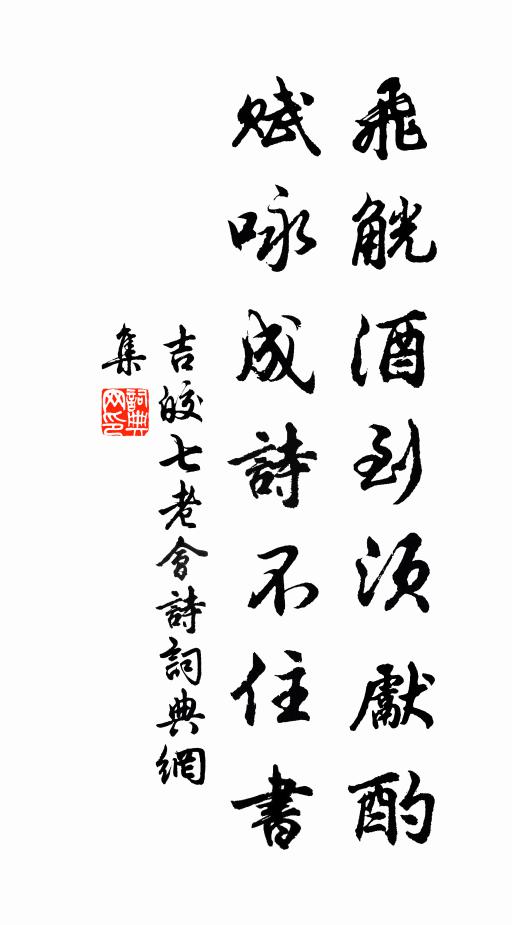 飛觥酒到須獻酌
賦咏成詩不住書
吉皎七老會詩詞典網
集
詞典網印